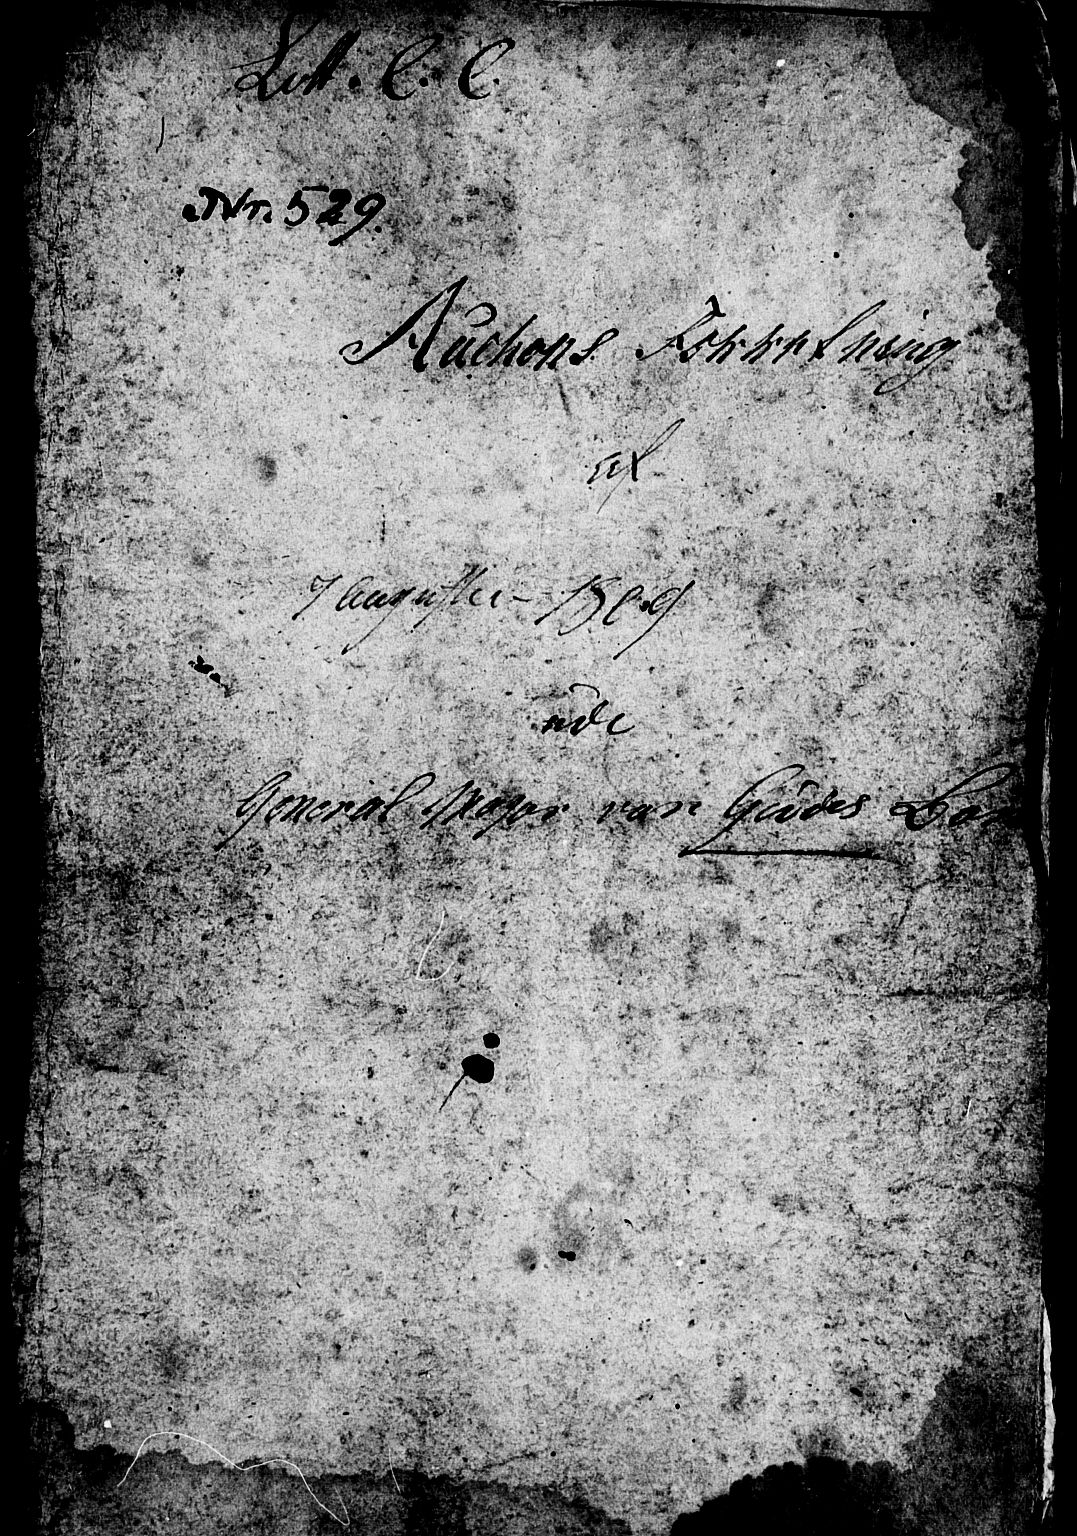 Litt. C. C.
Nr. 529.
Auctions Forretning
af
7 August 1809
udi
General Major von Güdes Boe